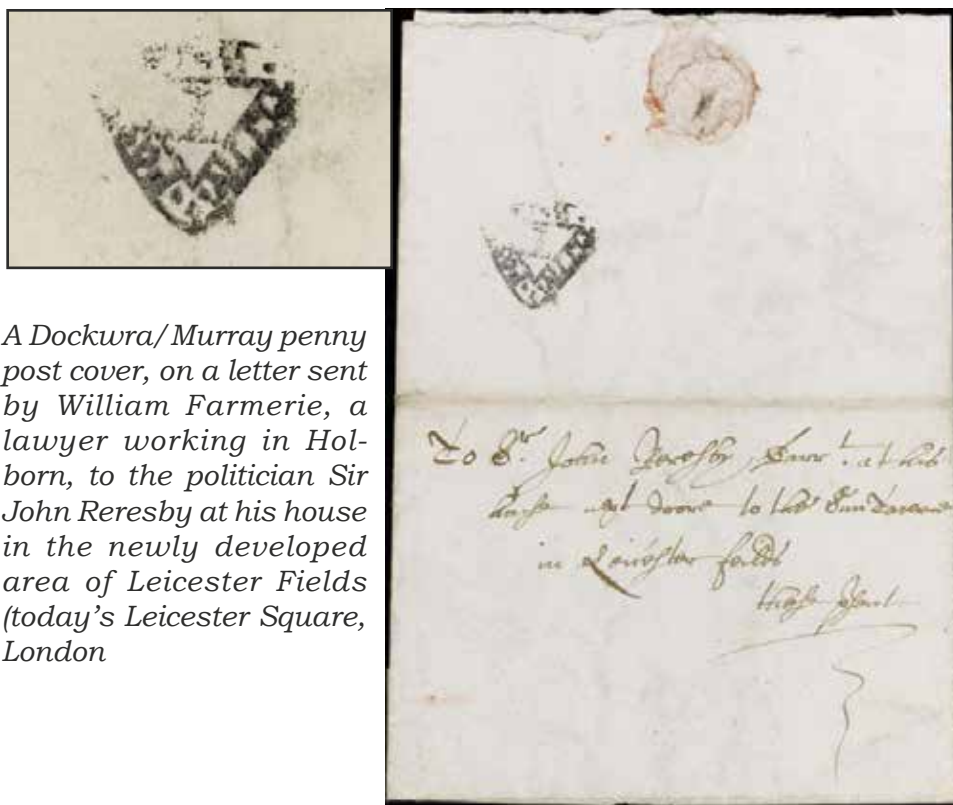 A Dockwra/Murray penny
post cover, on a letter sent
by William Farmerie, a
lawyer working in Hol-
born, to the politician Sir
John Reresby at his house
in the newly developed
area of Leicester Fields
(today's Leicester Square,
London
To Sr. John Reresby Barrt. at his
house next doore to the Sun Taverne
in Leicester feilds